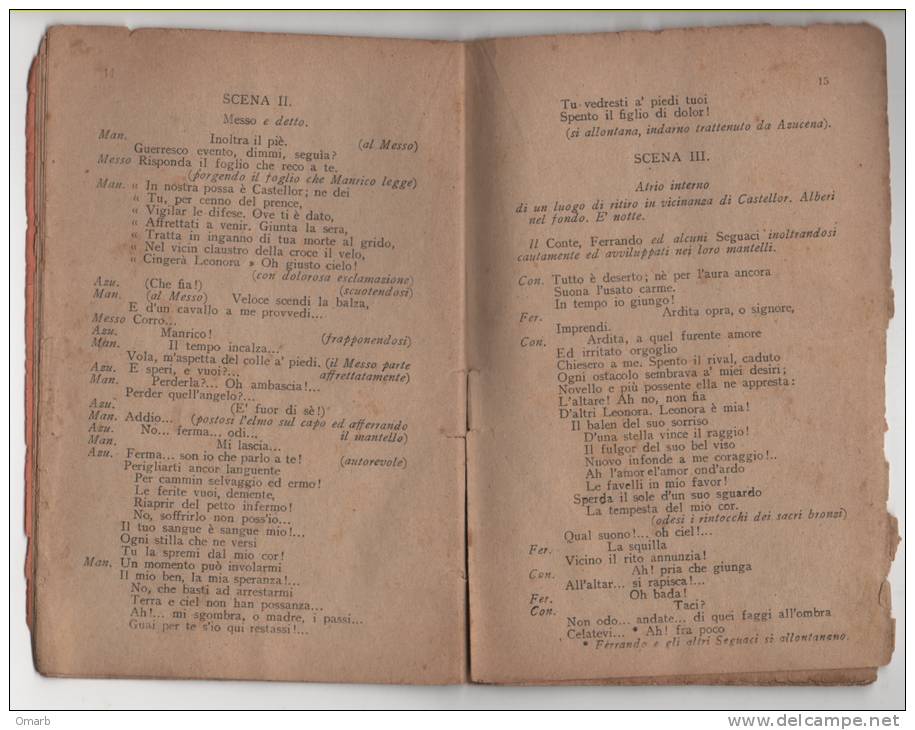 14
SCENA II.
Messo e detto.
Man. Inoltra il piè.
Guerresco evento, dimmi, seguìa? (al Messo)
Messo Risponda il foglio che reco a te.
(porgendo il foglio che Manrico legge)
Man. " In nostra possa è Castellor; ne dei
" Tu, per cenno del prence,
" Vigilar le difese. Ove ti è dato,
" Affrettati a venir. Giunta la sera,
" Tratta in inganno di tua morte al grido,
" Nel vicin claustro della croce il velo,
" Cingerà Leonora » Oh giusto cielo!
(con dolorosa esclamazione)
Azu. (Che fia!) (scuotendosi)
Man. (al Messo) Veloce scendi la balza,
E d'un cavallo a me provvedi...
Messo Corro...
Azu. Manrico! (frapponendosi)
Man. Il tempo incalza...
Vola, m'aspetta del colle a' piedi. (il Messo parte
Azu. E speri, e vuoi?... affrettatamente)
Man. Perderla?... Oh ambascia!...
Perder quell'angelo?...
Azu. (E' fuor di sè!)
Man. Addio... (postosi l'elmo sul capo ed afferrando
Azu. No... ferma... odi... il mantello)
Man. Mi lascia...
Azu. Ferma... son io che parlo a te! (autorevole)
Perigliarti ancor languente
Per cammin selvaggio ed ermo!
Le ferite vuoi, demente,
Riaprir del petto infermo!
No, soffrirlo non poss'io...
Il tuo sangue è sangue mio!...
Ogni stilla che ne versi
Tu la spremi dal mio cor!
Man. Un momento può involarmi
Il mio ben, la mia speranza!...
No, che basti ad arrestarmi
Terra e ciel non han possanza...
Ah!... mi sgombra, o madre, i passi...
Guai per te s'io qui restassi!...
15
Tu vedresti a' piedi tuoi
Spento il figlio di dolor!
(si allontana, indarno trattenuto da Azucena).
SCENA III.
Atrio interno
di un luogo di ritiro in vicinanza di Castellor. Alberi
nel fondo. E' notte.
Il Conte, Ferrando ed alcuni Seguaci inoltrandosi
cautamente ed avviluppati nei loro mantelli.
Con. Tutto è deserto; nè per l'aura ancora
Suona l'usato carme.
In tempo io giungo!
Fer. Ardita opra, o signore,
Imprendi.
Con. Ardita, a quel furente amore
Ed irritato orgoglio
Chiesero a me. Spento il rival, caduto
Ogni ostacolo sembrava a' miei desiri;
Novello e più possente ella ne appresta:
L'altare! Ah no, non fia
D'altri Leonora. Leonora è mia!
Il balen del suo sorriso
D'una stella vince il raggio!
Il fulgor del suo bel viso
Nuovo infonde a me coraggio!..
Ah l'amor el'amor ond'ardo
Le favelli in mio favor!
Sperda il sole d'un suo sguardo
La tempesta del mio cor.
(odesi i rintocchi dei sacri bronzi)
Qual suono!... oh ciel!...
Fer. La squilla
Vicino il rito annunzia!
Con. Ah! pria che giunga
All'altar... si rapisca!...
Fer. Oh bada!
Con. Taci?
Non odo... andate... di quei faggi all'ombra
Celatevi... * Ah! fra poco
* Ferrando e gli altri Seguaci si allontanano.
Omarb
www.delcampe.net